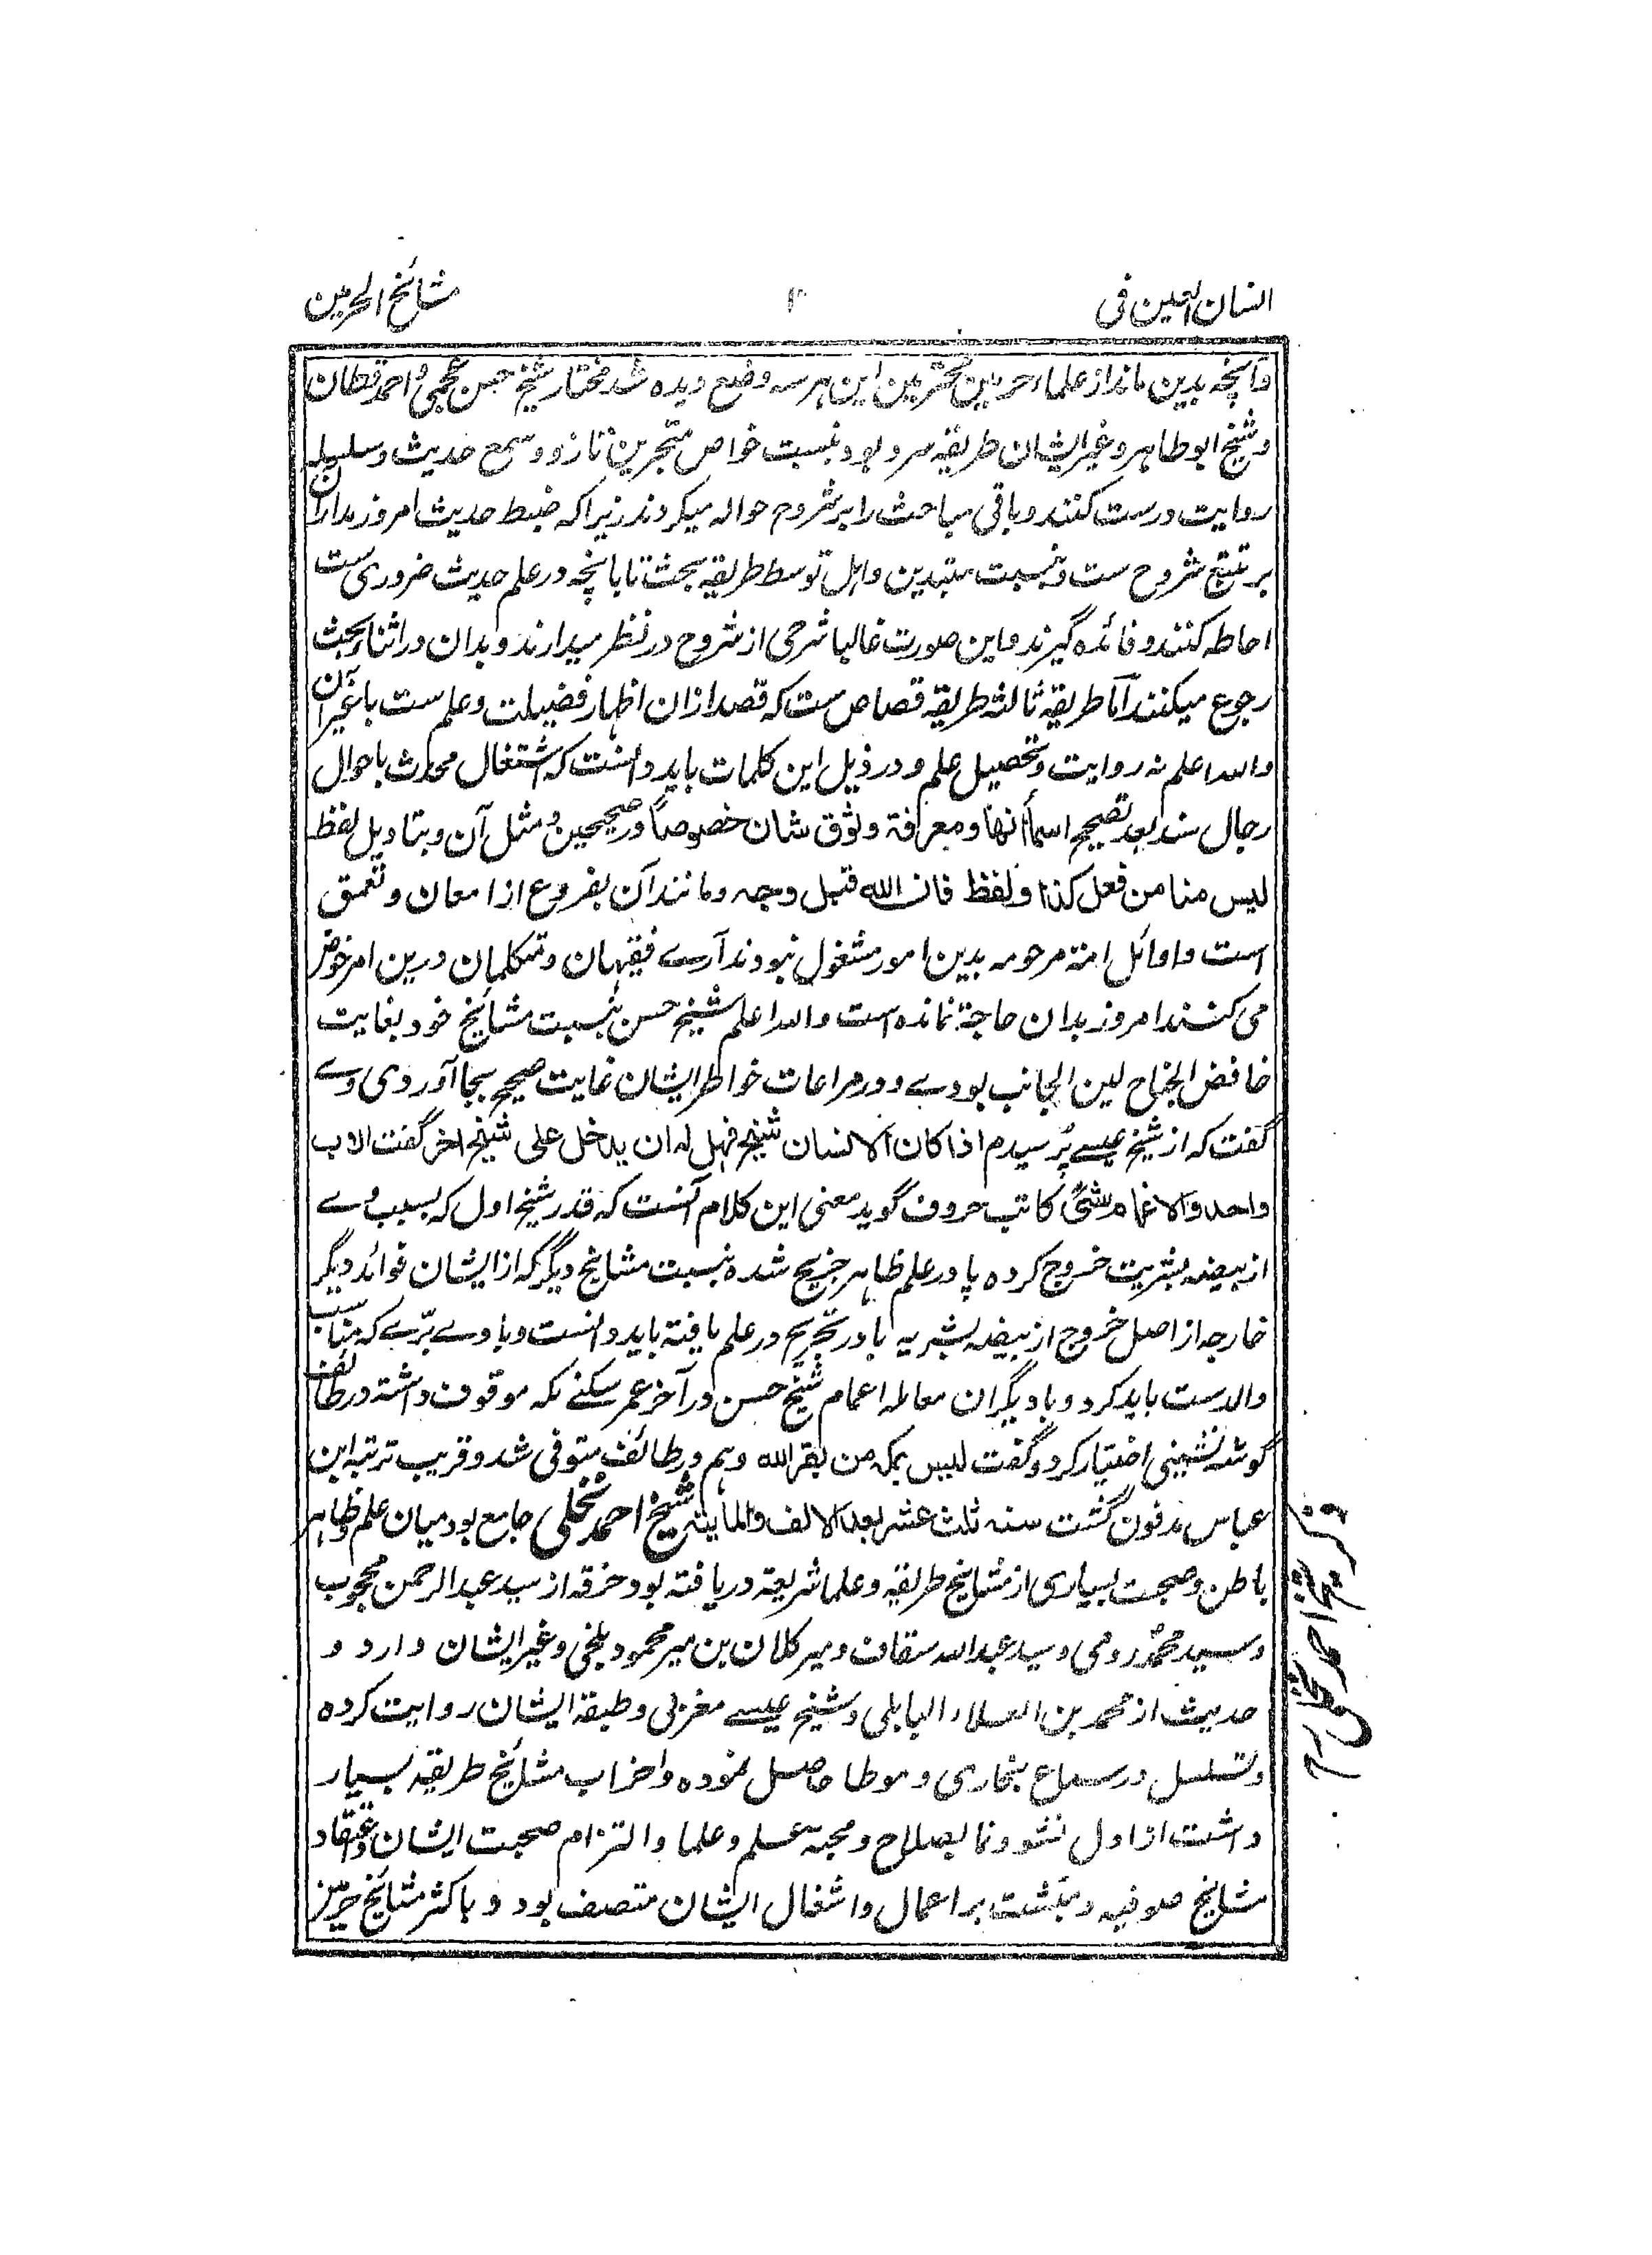 انسان العین فی
مشائخ الحرمین
وآنچه بدین ماند از علماء حرمین محترمین این هر سه وضع دیده شد مختار شیخ حسن عجمی و احمد قطان
و شیخ ابو طاهر و غیر ایشان طریقه سرد بود به نسبت خواص متبحرین تا زود سمع حدیث و سلسله
روایت درست کنند و باقی مباحث را بر شروح حواله میکردند زیرا که ضبط حدیث امروز مدار آن
بر تتبع شروح ست و بنسبت مبتدیین و اهل توسط طریقه بحث تا بانچه در علم حدیث ضروری ست
احاطه کنند و فائده گیرند و این صورت غالبا شرحی از شروح در نظر میدارند و بدان در اثناء بحث
رجوع میکنند اما طریقهٔ ثالثه طریقه قصاص ست که قصد ازان اظهار فضیلت و علم ست یا غیر آن
والله اعلم نه روایت و تحصیل علم و در ذیل این کلمات باید دانست که اشتغال محدث باحوال
رجال سند بعد تصحیح اسماء آنها و معرفة وثوق شان خصوصاً در صحیحین و مثل آن و بتاویل لفظ
لیس منا من فعل کذا و لفظ فان الله قبل وجهه و مانند آن بفروع از امعان و تعمق
است و اوائل امة مرحومه بدین امور مشغول نبودند آرے فقیهان و متکلمان درین امر خوض
می کنند امروز بدان حاجة نمانده است والله اعلم شیخ حسن بنسبت مشائخ خود بغایت
خافض الجناح لین الجانب بودے و در مراعات خواطر ایشان غایت صحیح بجا آوردی وے
گفت که از شیخ عیسے پرسیدم اذا کان الانسان شیخ فهل له ان یدخل علی شیخ اخر گفت الاب
واحد والاعمام شتی کاتب حروف گوید معنی این کلام آنست که قدر شیخ اول که بسبب وے
از بیضه بشریت خروج کرده یا در علم ظاهر خریج شده بنسبت مشائخ دیگر که از ایشان فوائد دیگر
خارجه از اصل خروج از بیضه بشریه یا در تخریج در علم یافته باید دانست و با وے برّے که مناسب
والد ست باید کرد و با دیگران معامله اعمام شیخ حسن در آخر عمر سکنے مکه موقوف داشته در طائف
گوشه نشینی اختیار کرد و گفت لیس بمکه من یقر الله و هم در طائف متوفی شد و قریب تربته ابن
عباس مدفون گشت سنه ثلث عشر بعد الالف والمایة شیخ احمد نخلی جامع بود میان علم ظاهر و
باطن و صحبت بسیاری از مشایخ طریقه و علماء شریعة دریافته بود خرقه از سید عبد الرحمن محجوب
و سید محمد رومی و سید عبد الله سقاف و میر کلان بن میر محمود بلخی و غیر ایشان دارد و
حدیث از محمد بن العلاء البابلی و شیخ عیسے مغربی و طبقة ایشان روایت کرده
و تسلسل در سماع بخاری و موطا حاصل نموده و احزاب مشائخ طریقه بسیار
داشت از اول نشو و نما بصلاح و محبة علم و علما و التزام صحبت ایشان و اعتقاد
مشایخ صوفیه و بگشت بر اعمال و اشغال ایشان متصف بود و با کثر مشائخ حرمین